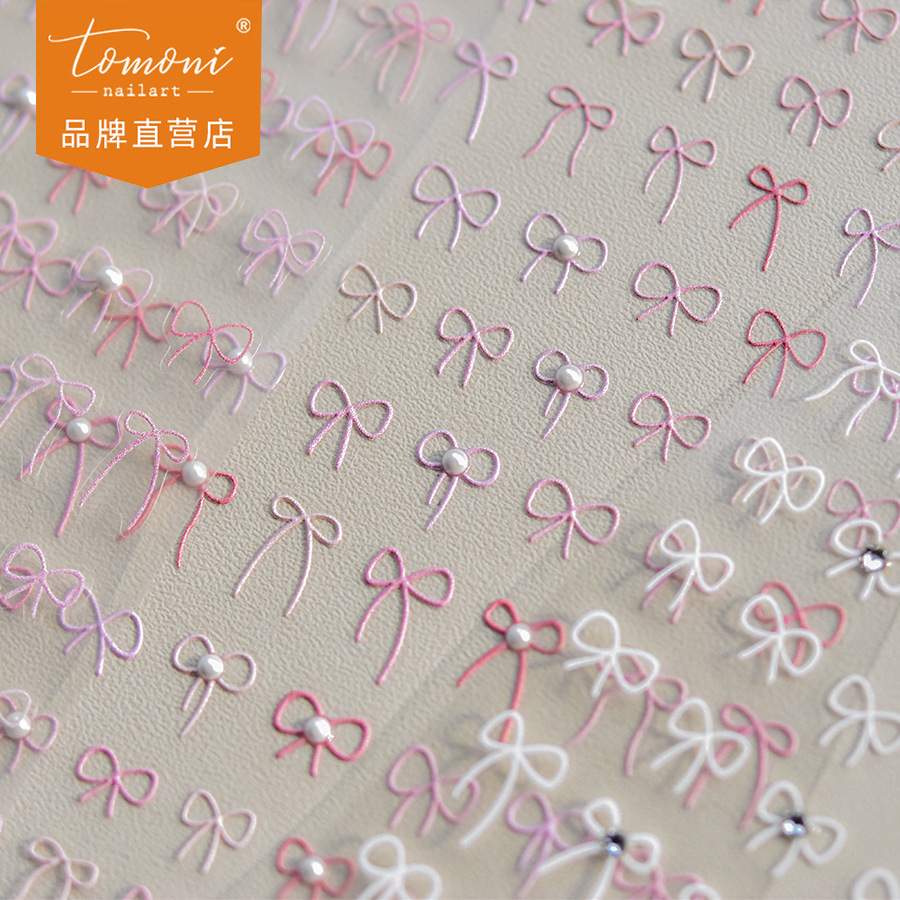 tomoni®
nailart
品牌直营店